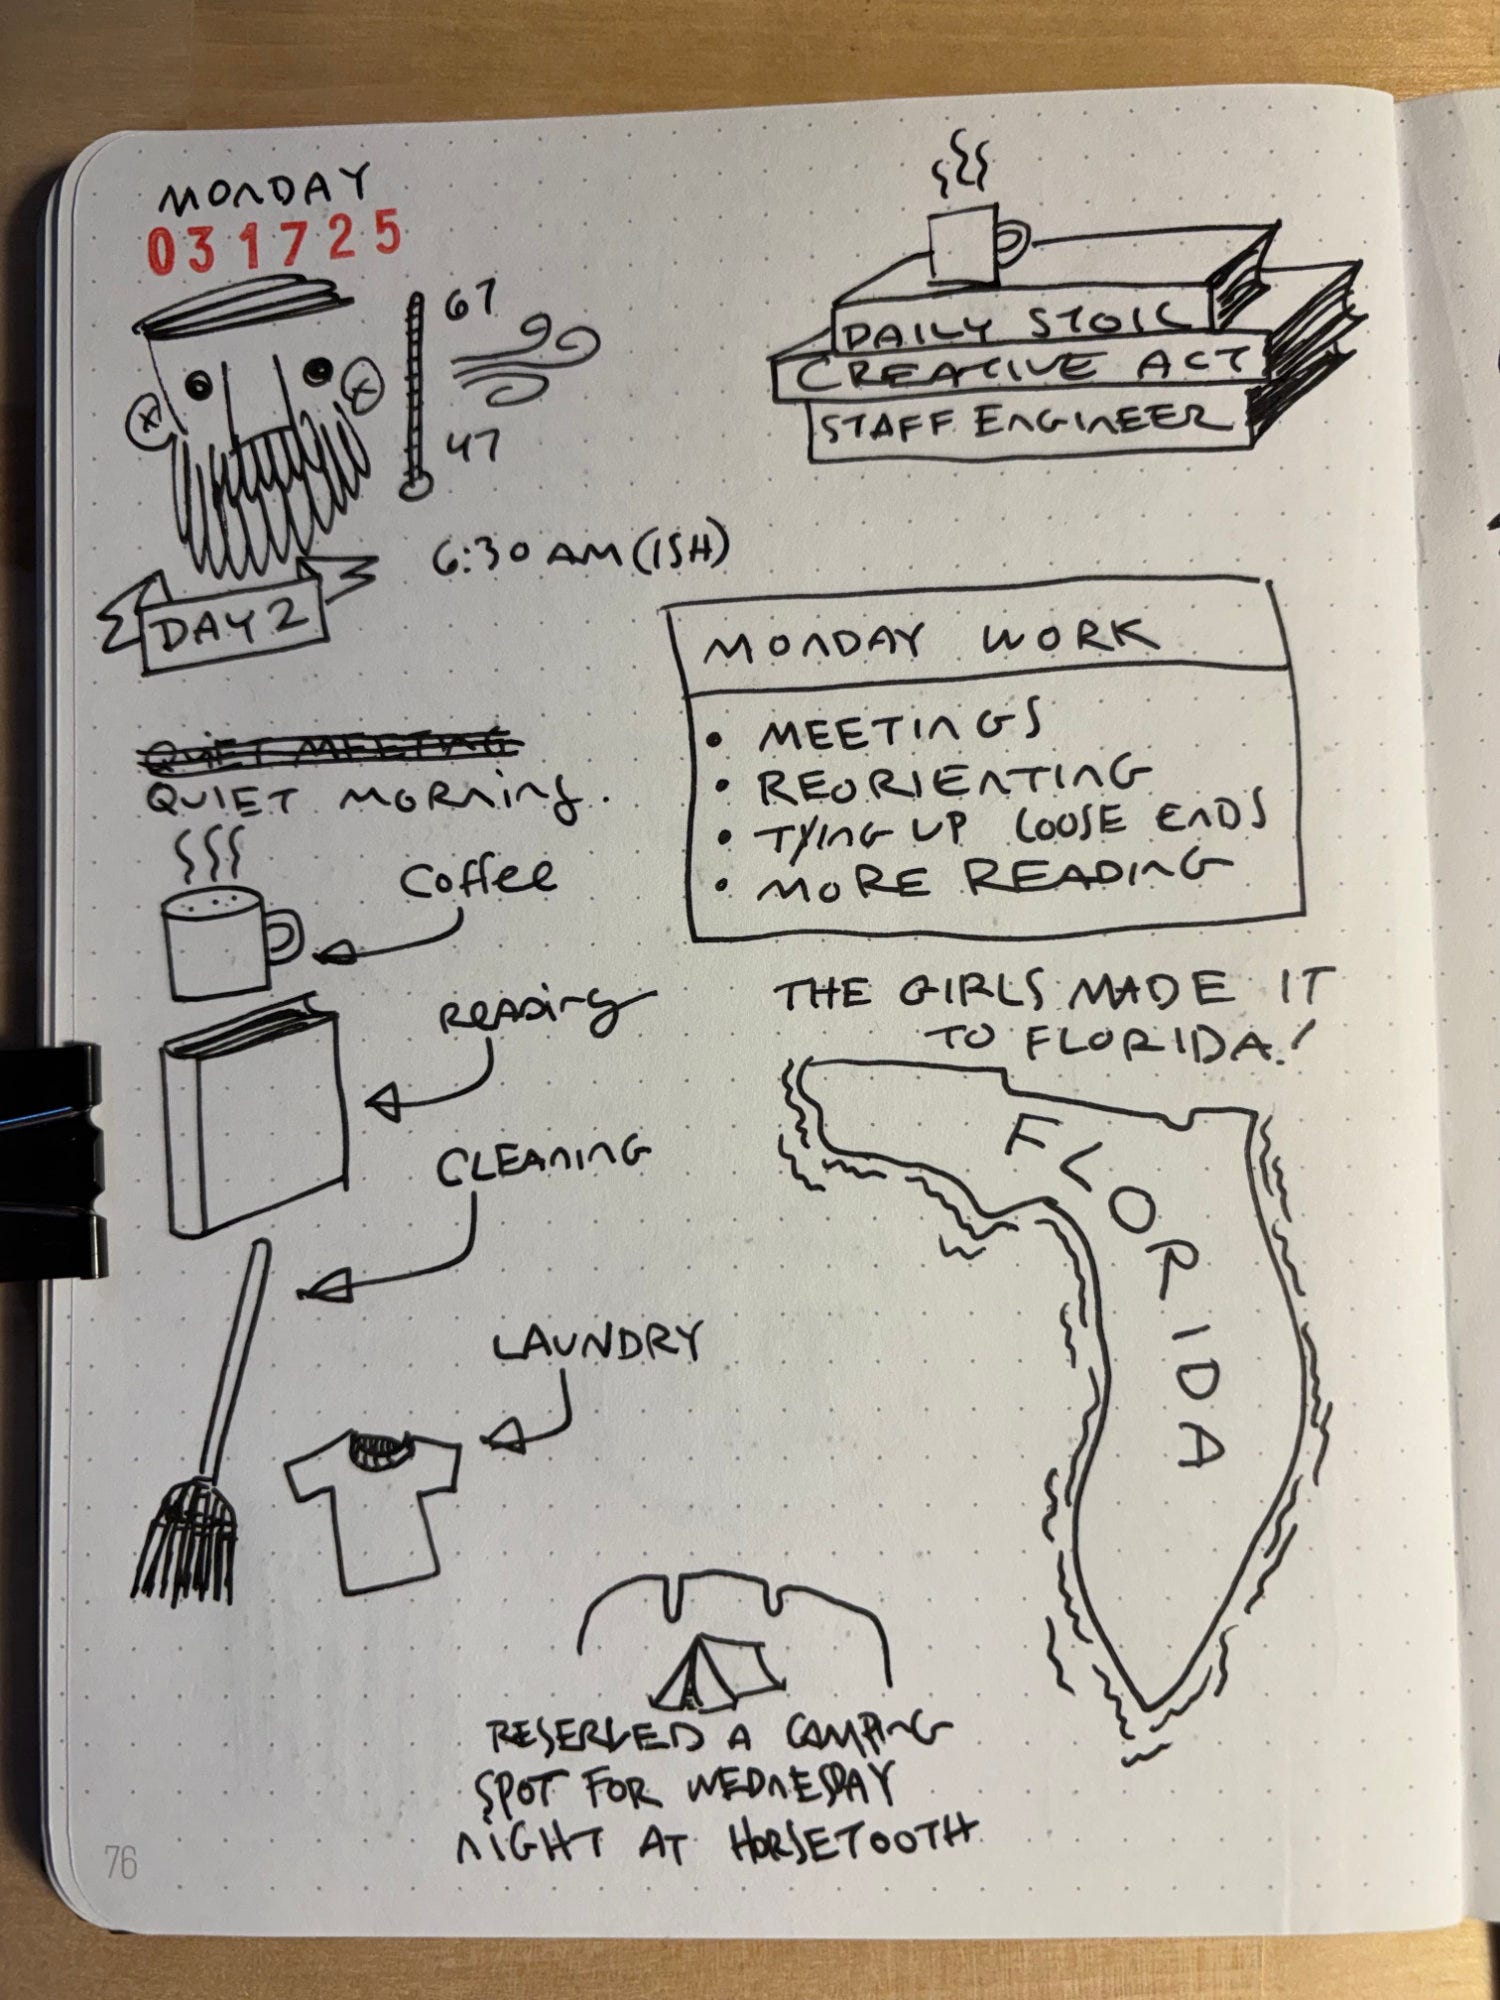 MONDAY
031725
67
47
6:30 AM (ISH)
DAY 2
DAILY STOIC
CREATIVE ACT
STAFF ENGINEER
QUIET MEETING
QUIET MORNING.
Coffee
READING
CLEANING
LAUNDRY
MONDAY WORK
• MEETINGS
• REORIENTING
• TYING UP LOOSE ENDS
• MORE READING
THE GIRLS MADE IT
TO FLORIDA!
FLORIDA
RESERVED A CAMPING
SPOT FOR WEDNESDAY
NIGHT AT HORSETOOTH
76